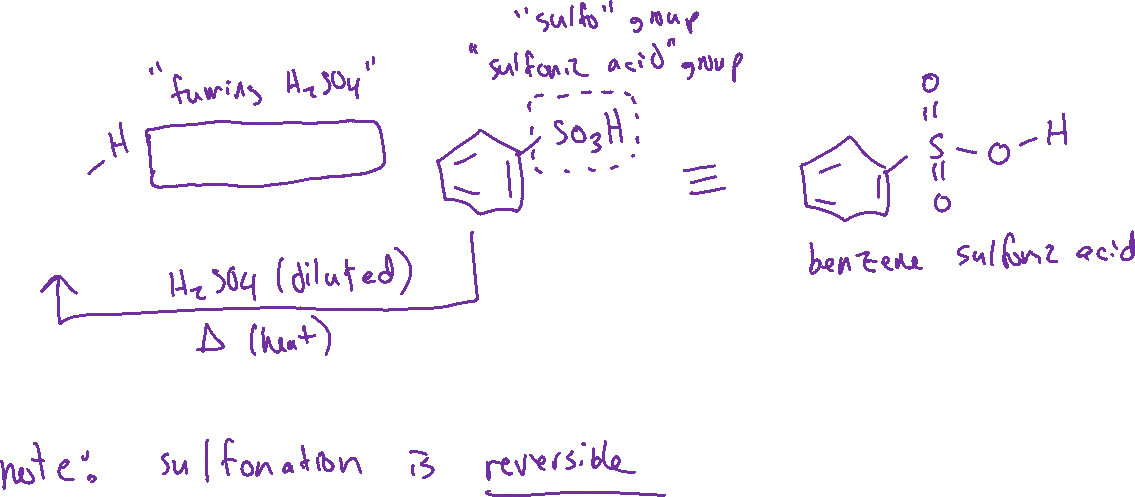 "sulfo" group
"sulfonic acid" group
"fuming H₂SO₄"
H
SO₃H
≡
O
S O H
O
benzene sulfonic acid
H₂SO₄ (diluted)
Δ (heat)
note: sulfonation is reversible